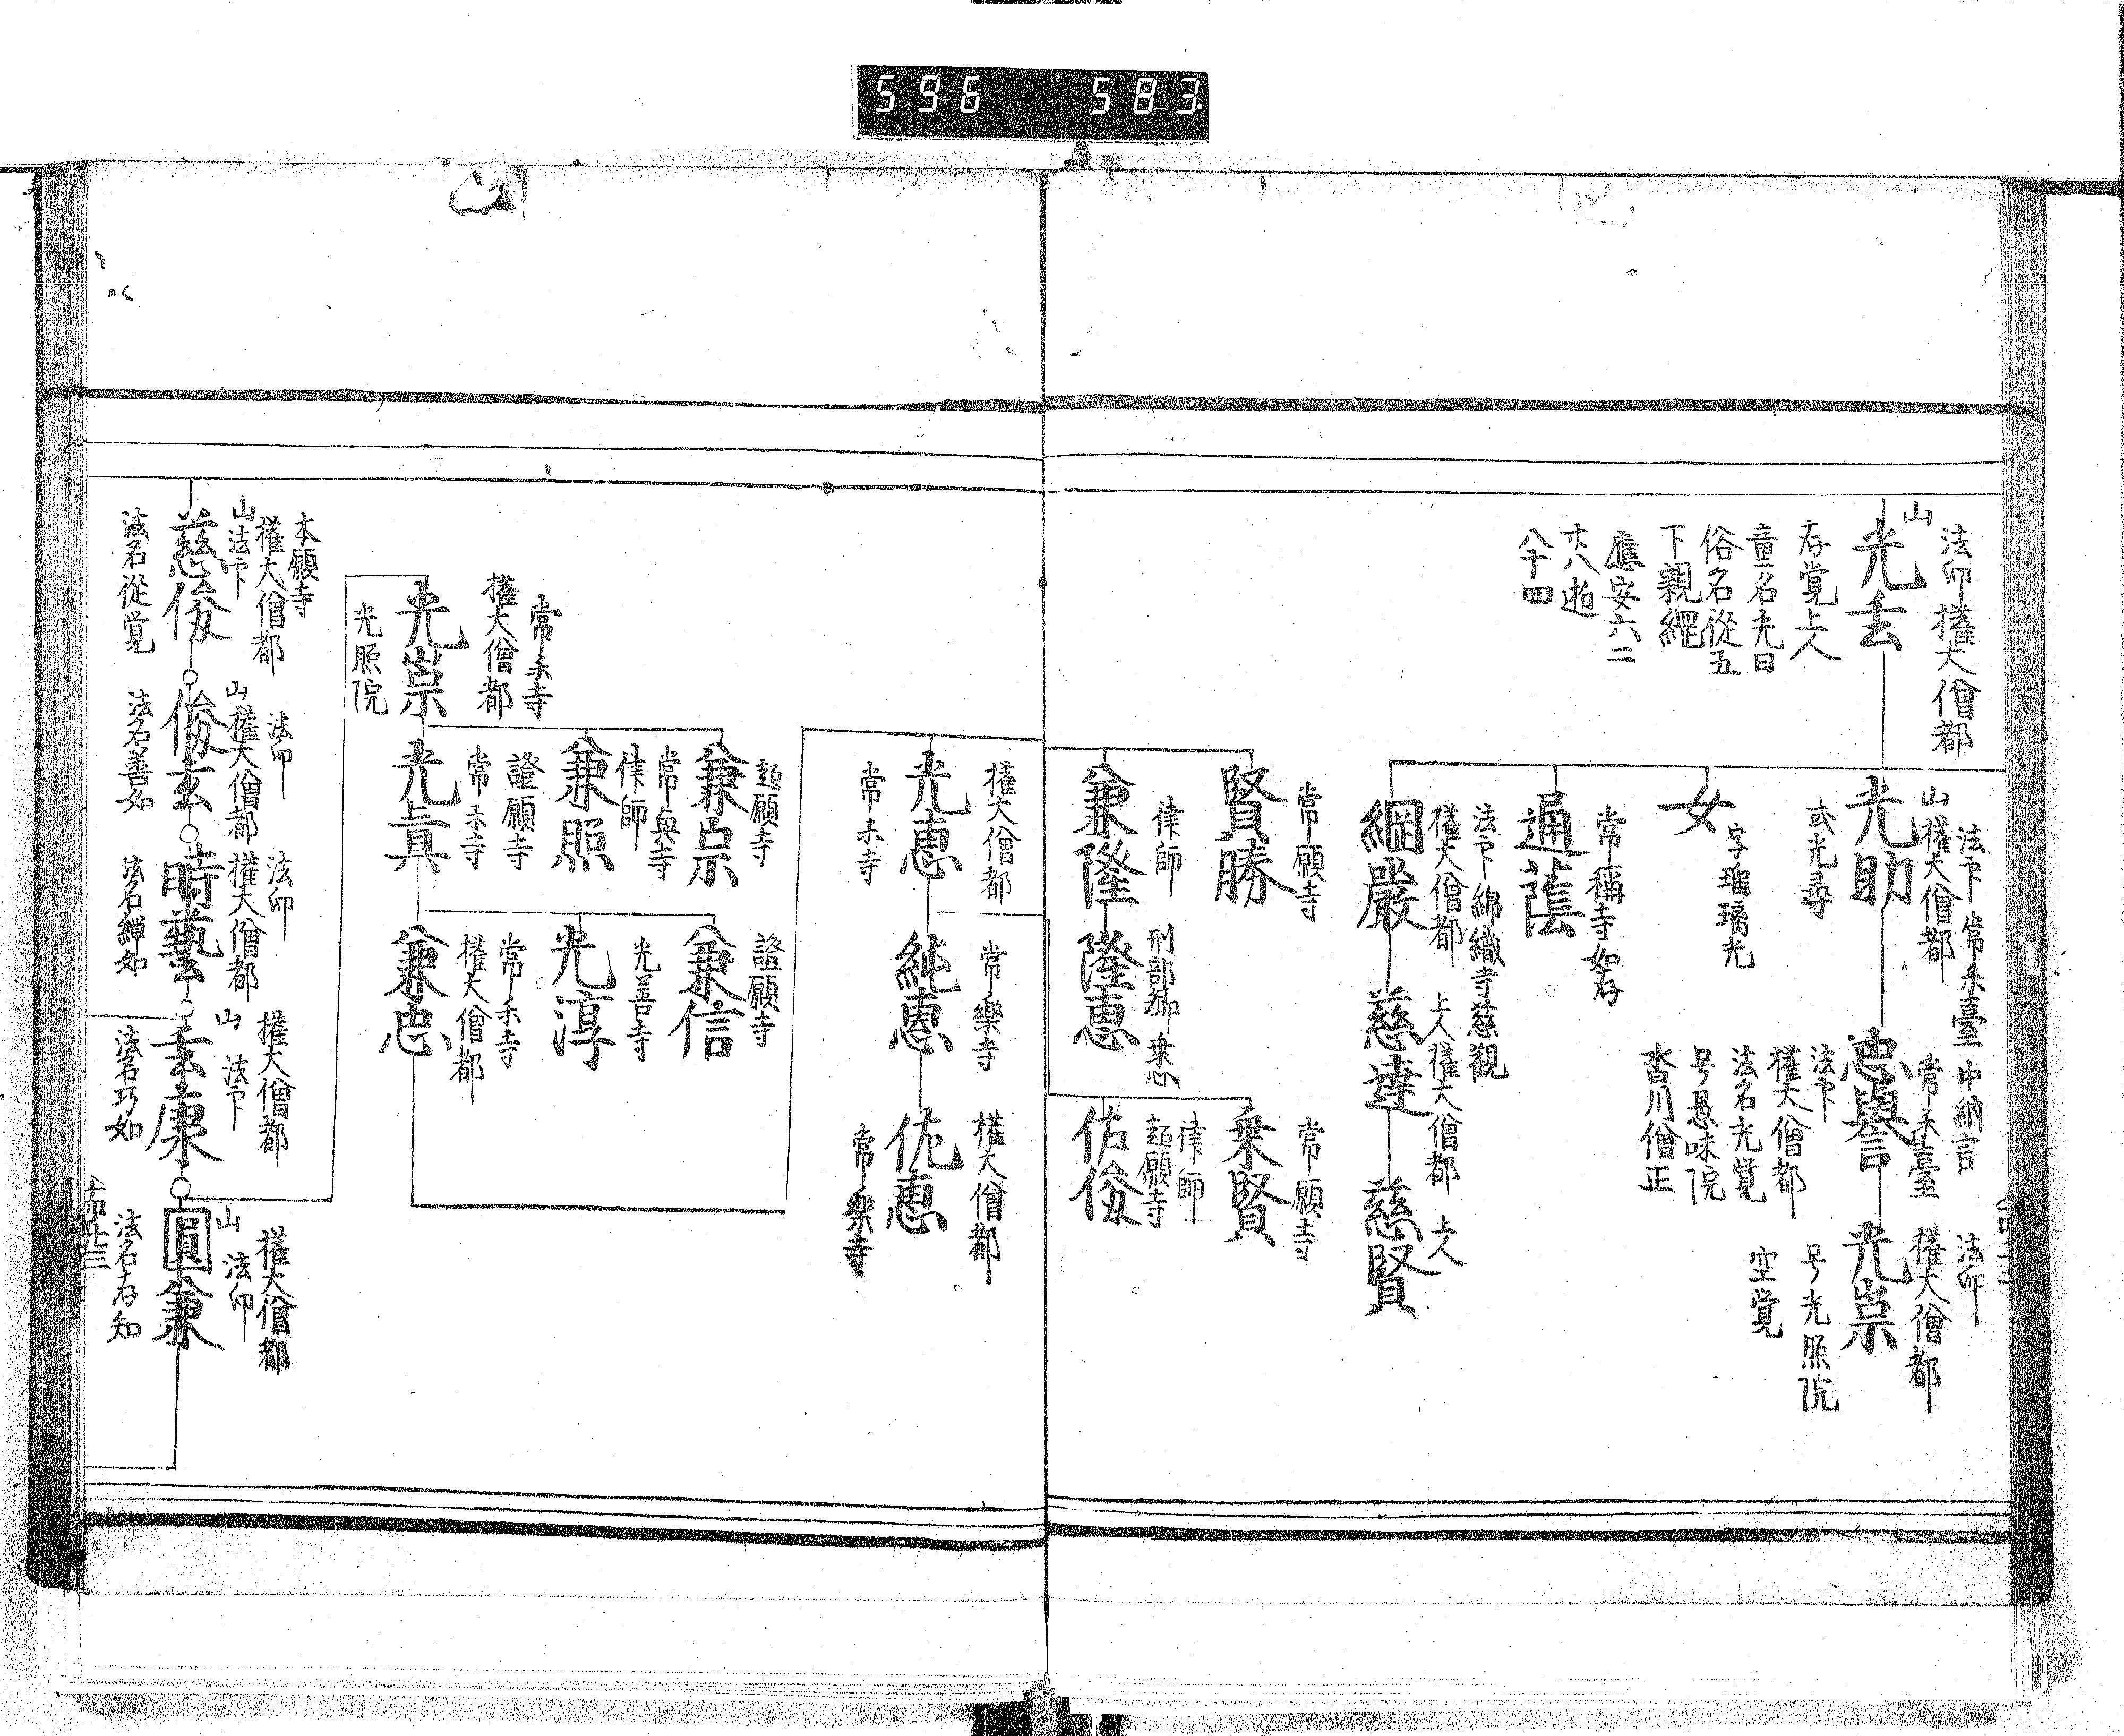 596 583
法印權大僧都
山
光玄
存覚上人
童名光日
俗名從五
下親綱
應安六二
廿八逝
八十四
法下常楽臺
山權大僧都
光助
或光尋
女
字瑠璃光
常稱寺如存
通蔭
法下綿織寺慈觀
權大僧都
綱嚴
中納言
常楽臺
忠譽
法下
權大僧都
法名光覚
号是味院
沓川僧正
上人權大僧都
慈達
法印
權大僧都
光崇
号光照院
空覚
上人
慈賢
常願寺
賢勝
律師
兼隆
刑部卿
隆恵
常願寺
乗賢
律師
超願寺
佑俊
權大僧都
光恵
常楽寺
常樂寺
純恵
權大僧都
佐恵
常樂寺
常楽寺
權大僧都
光崇
光照院
超願寺
兼宗
常與寺
律師
兼照
證願寺
常楽寺
光眞
證願寺
兼信
光善寺
光淳
常楽寺
權大僧都
兼忠
本願寺
權大僧都
山法下
慈俊
法名從覚
法印
山權大僧都
俊玄
法名善如
法印
權大僧都
時藝
法名綽如
權大僧都
山法下
玄康
法名巧如
權大僧都
山法印
圓兼
法名存知